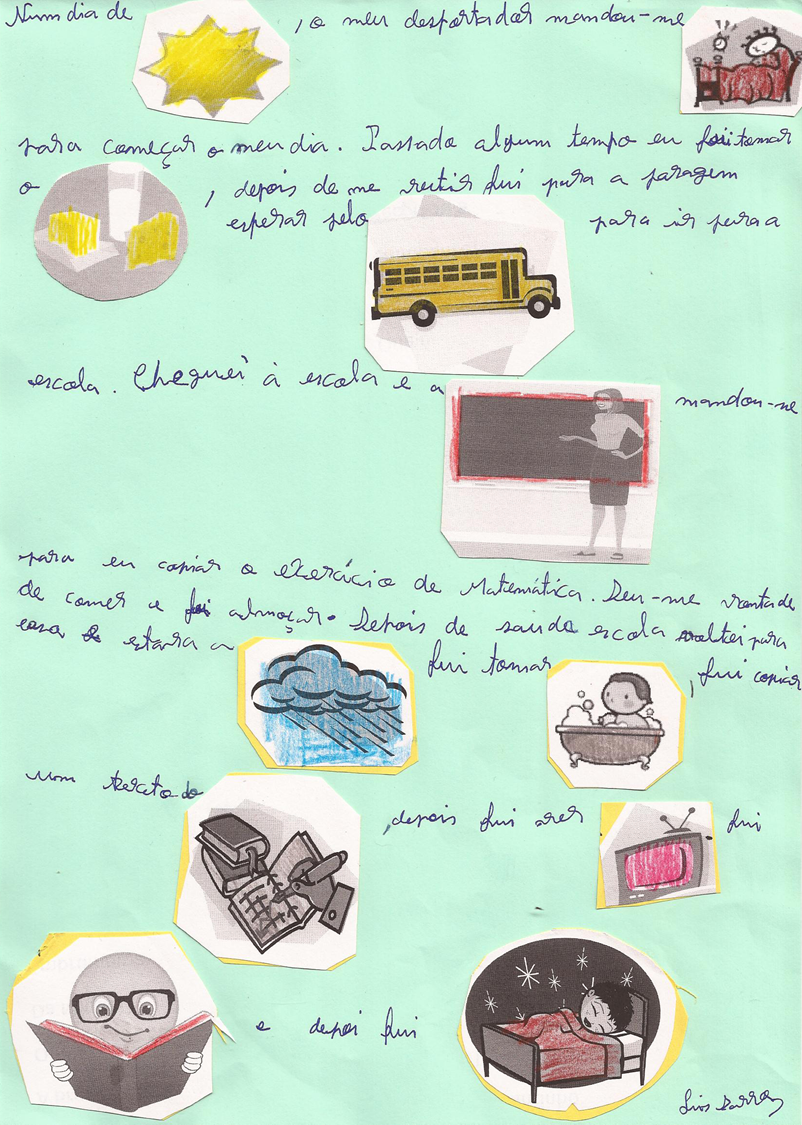 Num dia de , o meu despertador mandou-me
para começar o meu dia. Passado algum tempo eu fui tomar
o , depois de me vestir fui para a paragem
esperar pelo para ir para a
escola. Cheguei à escola e a mandou-me
para eu copiar o exercício de Matemática. Deu-me vontade
de comer e fui almoçar. Depois de sair da escola voltei para
casa estava a fui tomar , fui copiar
um texto do
, depois fui ver fui
e depoi fui